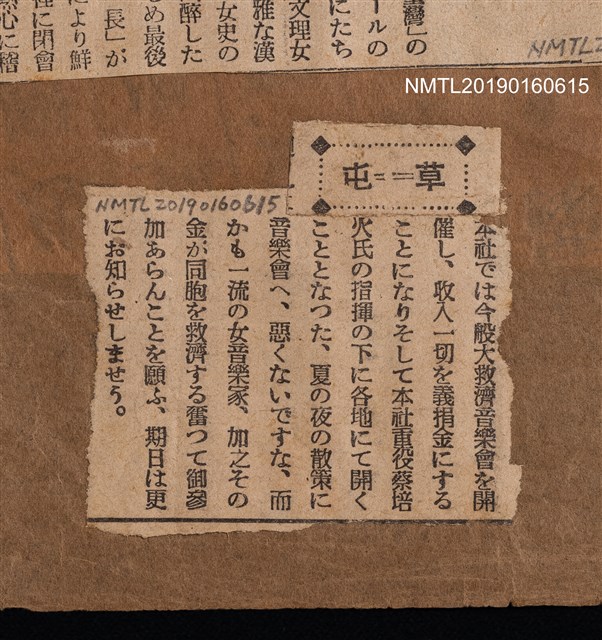 灣」の
ールの
にたち
文理女
雅な漢
女史の
醉した
め最後
長」が
により鮮
裡に閉會
熱心に稽
NMTL2
NMTL20190160615
草==屯
NMTL20190160615
本社では今般大救濟音樂會を開
催し、收入一切を義捐金にする
ことになりそして本社重役蔡培
火氏の指揮の下に各地にて開く
こととなつた、夏の夜の散策に
音樂會へ、惡くないですな、而
かも一流の女音樂家、加之その
金が同胞を救濟する奮つて御參
加あらんことを願ふ、期日は更
にお知らせしませう。